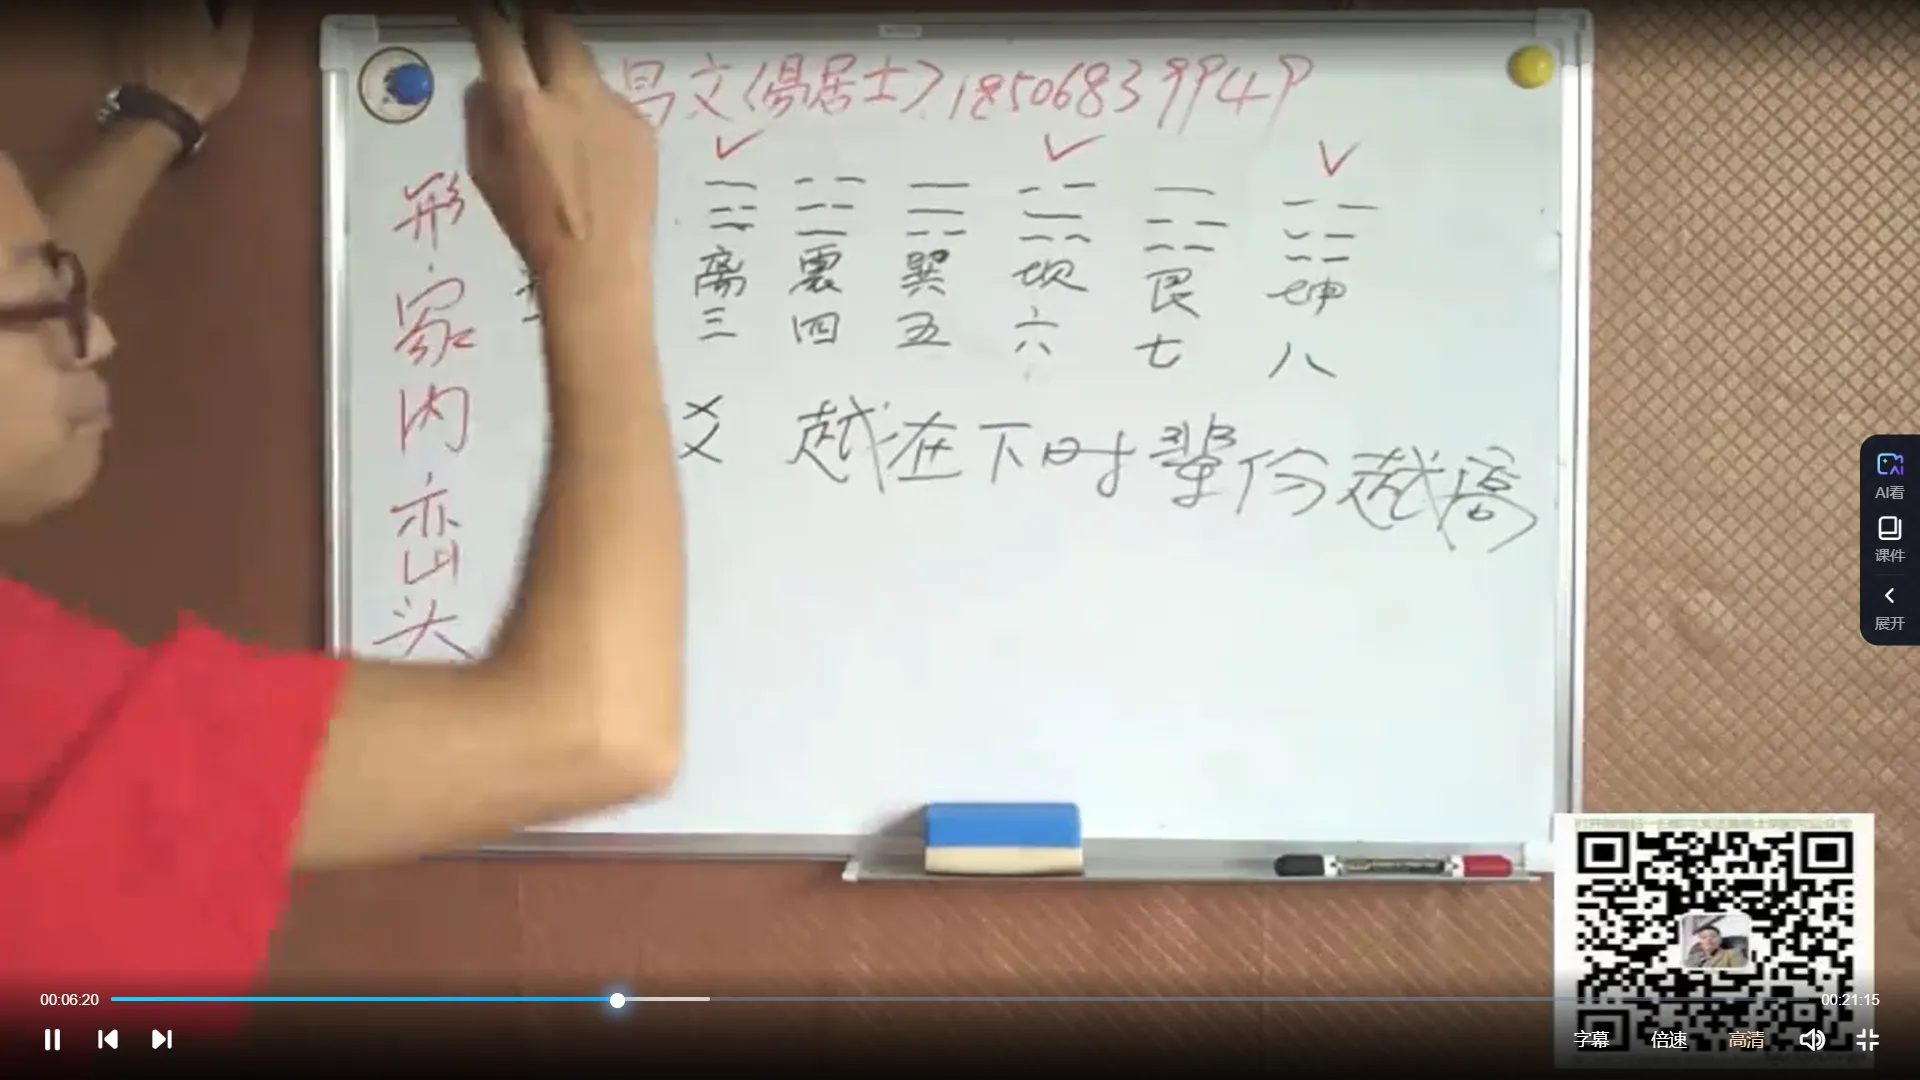 昌文(易居士)18506839949
形家内峦头
离 震 巽 坎 艮 坤
三 四 五 六 七 八
爻 越在下时辈份越高
AI看
课件
展开
00:06:20
00:21:15
字幕 倍速 高清